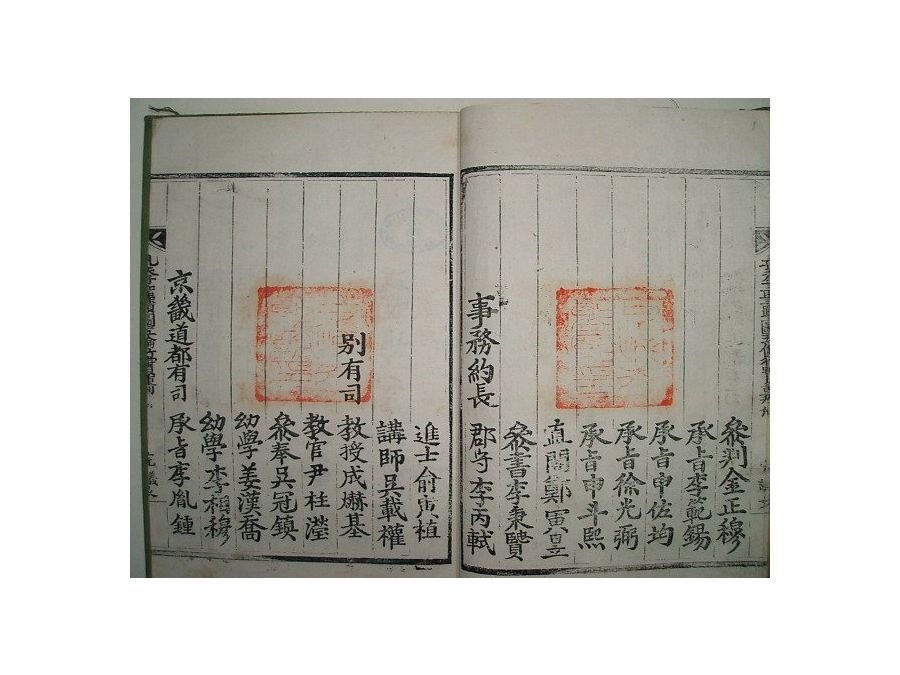 叅判金正穆
承旨李範錫
承旨申佐均
承旨徐光弼
承旨申斗熙
直閣鄭寅昱
叅書李秉贒
事務約長 郡守李丙軾
進士俞寅植
講師吳載權
別有司 教授成爀基
教官尹桂瀅
叅奉吳冠鎮
幼學姜漢喬
幼學李相穆
京畿道都有司 承旨李胤鍾